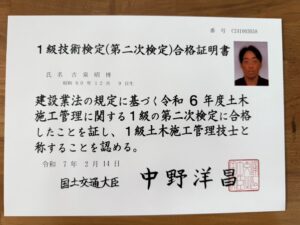 番 号 C241063058
1級技術検定(第二次検定)合格証明書
氏 名 古泉昭博
昭和60年12月9日生
建設業法の規定に基づく令和 6 年度土木
施工管理に関する1級の第二次検定に合格
したことを証し、1級土木施工管理技士と
称することを認める。
令和 7年 2月14日
国土交通大臣 中野洋昌